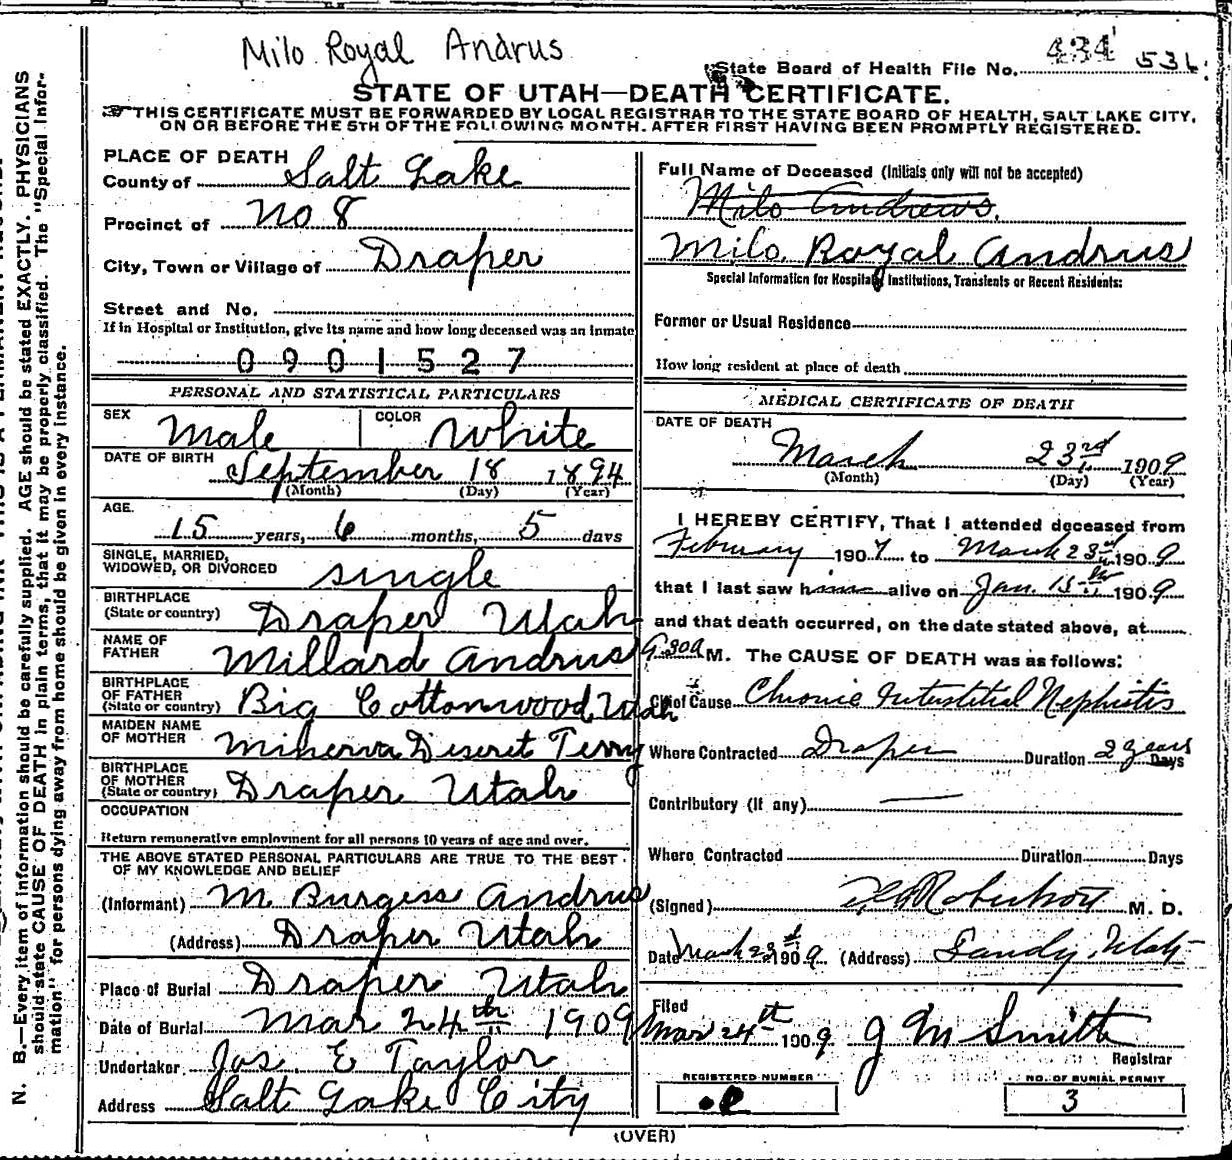 Milo Royal Andrus
434 536
State Board of Health File No.
STATE OF UTAH—DEATH CERTIFICATE.
THIS CERTIFICATE MUST BE FORWARDED BY LOCAL REGISTRAR TO THE STATE BOARD OF HEALTH, SALT LAKE CITY,
ON OR BEFORE THE 5TH OF THE FOLLOWING MONTH. AFTER FIRST HAVING BEEN PROMPTLY REGISTERED.
PLACE OF DEATH
County of Salt Lake
Precinct of No 8
City, Town or Village of Draper
Street and No.
If in Hospital or Institution, give its name and how long deceased was an inmate
0901527
PERSONAL AND STATISTICAL PARTICULARS
SEX Male COLOR White
DATE OF BIRTH September 18 1894
(Month) (Day) (Year)
AGE.
15 years, 6 months, 5 days
SINGLE, MARRIED,
WIDOWED, OR DIVORCED single
BIRTHPLACE
(State or country) Draper Utah
NAME OF
FATHER Millard Andrus
BIRTHPLACE
OF FATHER
(State or country) Big Cottonwood, Utah
MAIDEN NAME
OF MOTHER Minerva Deseret Terry
BIRTHPLACE
OF MOTHER
(State or country) Draper Utah
OCCUPATION
Return remunerative employment for all persons 10 years of age and over.
THE ABOVE STATED PERSONAL PARTICULARS ARE TRUE TO THE BEST
OF MY KNOWLEDGE AND BELIEF
(Informant) M. Burgess Andrus
(Address) Draper Utah
Place of Burial Draper Utah
Date of Burial Mar 24th 1909
Undertaker Jos. E Taylor
Address Salt Lake City
Full Name of Deceased (Initials only will not be accepted)
Milo Andrews.
Milo Royal Andrus
Special Information for Hospitals, Institutions, Transients or Recent Residents:
Former or Usual Residence
How long resident at place of death
MEDICAL CERTIFICATE OF DEATH
DATE OF DEATH
March 23rd 1909
(Month) (Day) (Year)
I HEREBY CERTIFY, That I attended deceased from
February 1907 to March 23rd 1909
that I last saw him alive on Jan. 15th 1909
and that death occurred, on the date stated above, at
9.30a M. The CAUSE OF DEATH was as follows:
Chief Cause Chronic Interstitial Nephritis
Where Contracted Draper Duration 2 years Days
Contributory (If any)
Where Contracted Duration Days
(Signed) Robertson M. D.
Date March 23d 1909 (Address) Sandy, Utah
Filed
Mar 24th 1909 J M Smith
Registrar
REGISTERED NUMBER
NO. OF BURIAL PERMIT
3
(OVER)
N. B.—Every item of information should be carefully supplied. AGE should be stated EXACTLY. PHYSICIANS
should state CAUSE OF DEATH in plain terms, that it may be properly classified. The "Special Infor-
mation" for persons dying away from home should be given in every instance.